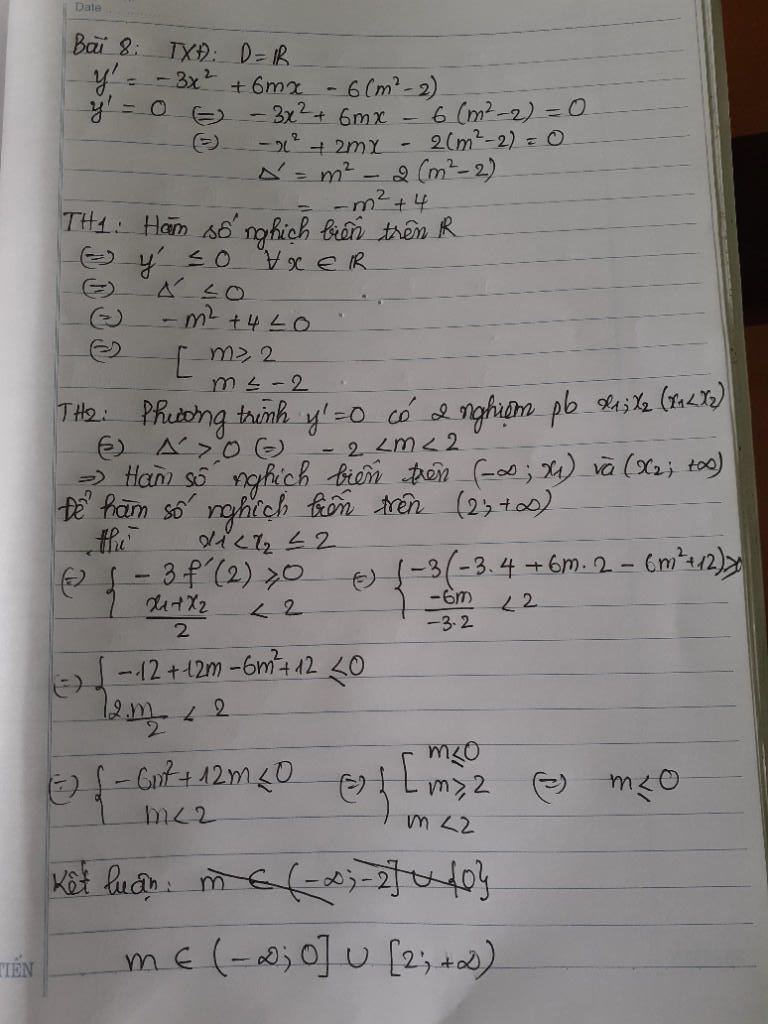 Date
Bài 8: TXĐ: D = ℝ
y' = -3x² + 6mx - 6(m²-2)
y' = 0 (=) -3x² + 6mx - 6(m²-2) = 0
(=) -x² + 2mx - 2(m²-2) = 0
Δ' = m² - 2(m²-2)
= -m² + 4
TH1: Hàm số nghịch biến trên ℝ
(=) y' ≤ 0 ∀x ∈ ℝ
(=) Δ' ≤ 0
(=) -m² + 4 ≤ 0
(=) [ m ≥ 2
m ≤ -2
TH2: Phương trình y' = 0 có 2 nghiệm pb x₁; x₂ (x₁ < x₂)
(=) Δ' > 0 (=) -2 < m < 2
=> Hàm số nghịch biến trên (-∞; x₁) và (x₂; +∞)
Để hàm số nghịch biến trên (2; +∞)
thì x₁ < x₂ ≤ 2
(=) { -3f'(2) ≥ 0 (=) { -3(-3.4 + 6m.2 - 6m² + 12) ≥
(x₁+x₂)/2 < 2 -6m/-3.2 < 2
(=) { -12 + 12m - 6m² + 12 ≤ 0
2.m/2 < 2
(=) { -6m² + 12m ≤ 0 (=) { [ m ≤ 0
m < 2 m ≥ 2 (=) m ≤ 0
m < 2
Kết luận: m ∈ (-∞; -2] ∪ {0}
m ∈ (-∞; 0] ∪ [2; +∞)
TIẾN